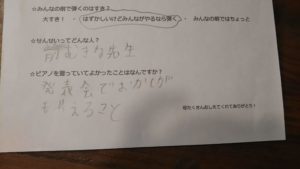 ☆みんなの前で弾くのはすき?
大すき! ・ はずかしいけどみんながやるなら弾く ・ みんなの前ではちょっと
☆せんせいってどんな人?
前むきな先生
☆ピアノを習っていてよかったことはなんですか?
発表会でおかしが
もらえること